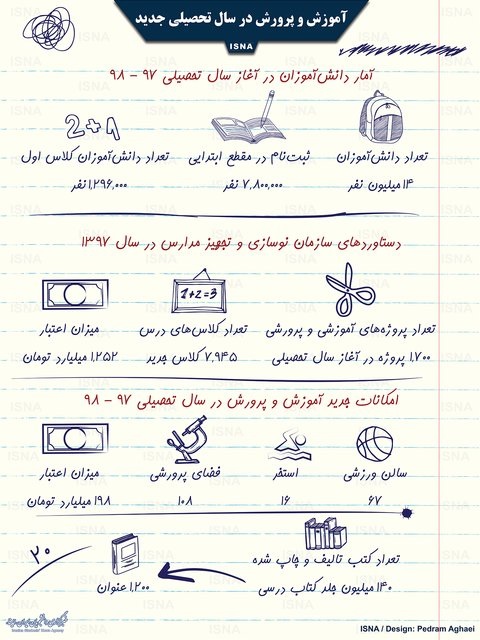 آموزش و پرورش در سال تحصیلی جدید
ISNA
آمار دانش‌آموزان در آغاز سال تحصیلی ۹۷ - ۹۸
۲+۸
تعداد دانش‌آموزان
۱۴ میلیون نفر
ثبت‌نام در مقطع ابتدایی
۷,۸۰۰,۰۰۰ نفر
تعداد دانش‌آموزان کلاس اول
۱,۲۹۶,۰۰۰ نفر
دستاوردهای سازمان نوسازی و تجهیز مدارس در سال ۱۳۹۷
1+2=3
تعداد پروژه‌های آموزشی و پرورشی
۱,۷۰۰ پروژه در آغاز سال تحصیلی
تعداد کلاس‌های درس
۷,۹۴۵ کلاس جدید
میزان اعتبار
۱,۲۵۲ میلیارد تومان
امکانات جدید آموزش و پرورش در سال تحصیلی ۹۷ - ۹۸
سالن ورزشی
۶۷
استخر
۱۶
فضای پرورشی
۱۰۸
میزان اعتبار
۱۹۸ میلیارد تومان
تعداد کتب تالیف و چاپ شده
۱۴۰ میلیون جلد کتاب درسی
۱,۲۰۰ عنوان
۲۰
ISNA / Design: Pedram Aghaei